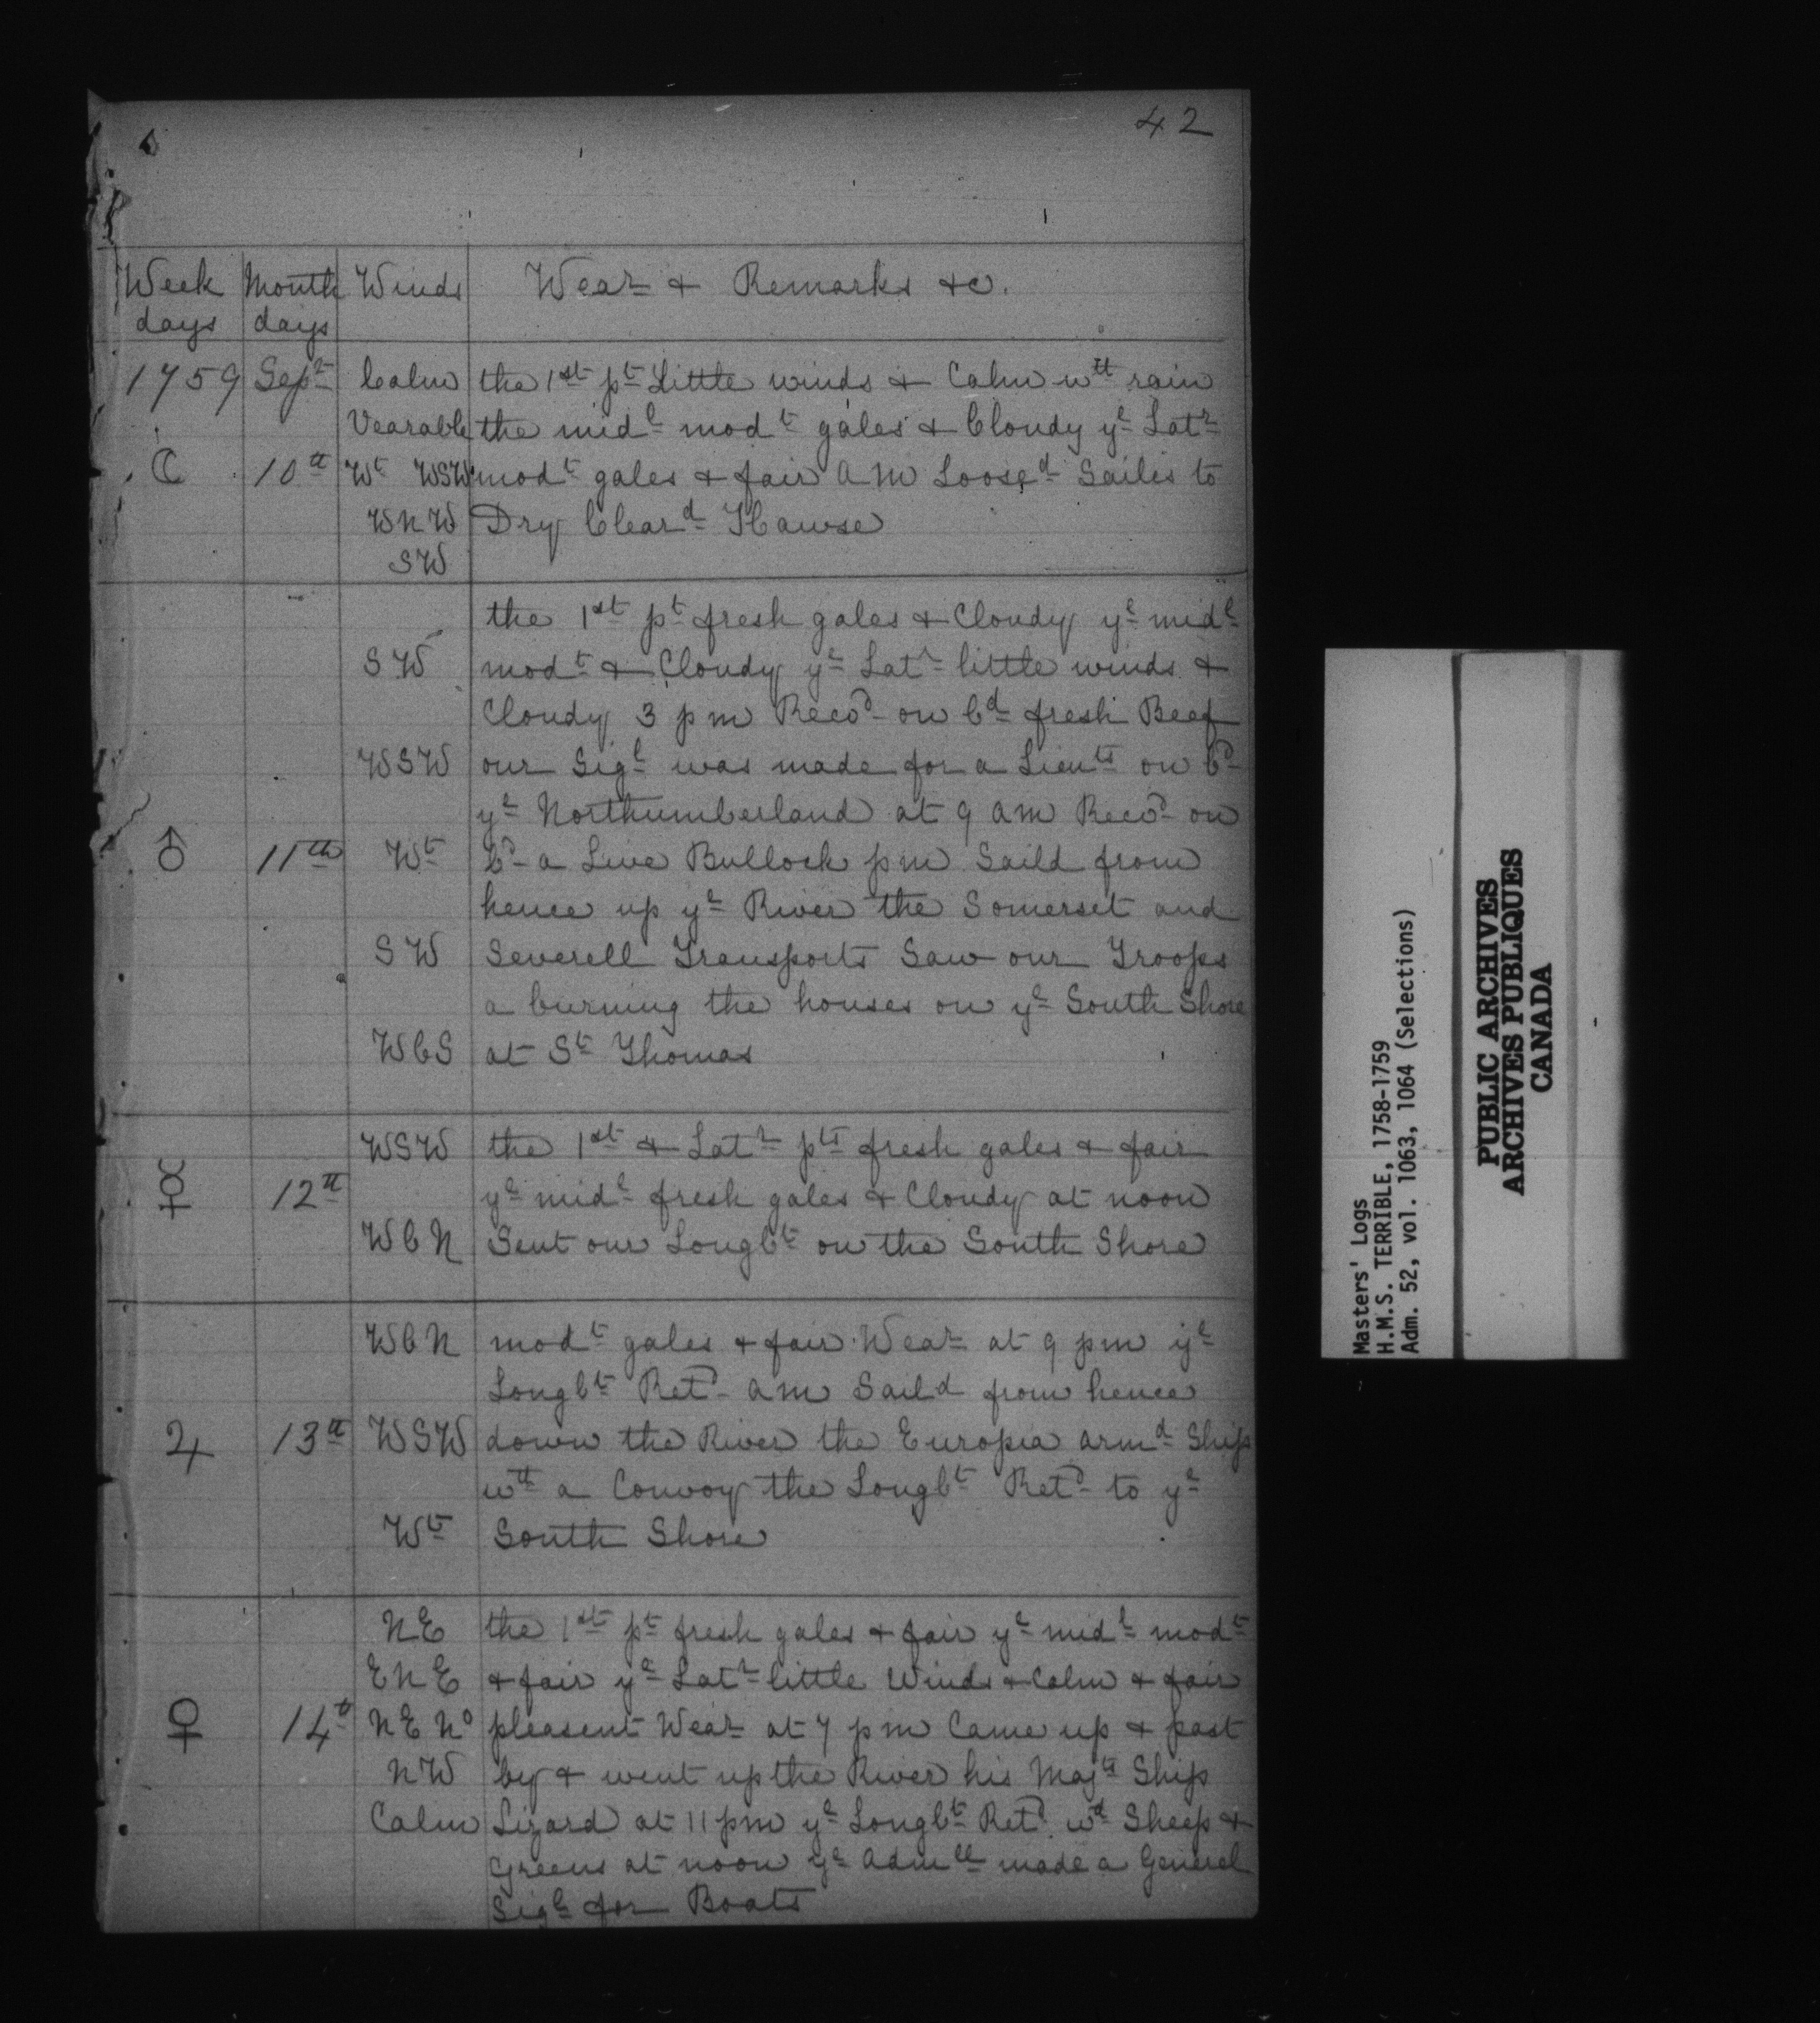 42
Week days | Month days | Winds | Wear & Remarks &c.
1759 Sept Calm the 1st pt Little winds & Calm wth rain
Vearable the midl modt gales & Cloudy ye Latr
☾ 10th Wt WSW modt gales & fair AM Loosed Sailes to
WNW Dry Cleard Hawse
SW
the 1st pt fresh gales & Cloudy ye midl
SW modt & Cloudy ye Latr little winds &
Cloudy 3 pm Recd on bd fresh Beef
WSW our Sigl was made for a Lieuts on bd
ye Northumberland at 9 am Recd on
♂ 11th Wt bd a Live Bullock pm Saild from
hence up ye River the Somerset and
SW Severell Transports Saw our Troops
a burning the houses on ye South Shore
WbS at St Thomas
WSW the 1st & Latr pts fresh gales & fair
☿ 12th ye midl fresh gales & Cloudy at noon
WbN Sent our Longbt on the South Shore
WbN modt gales & fair Wear at 9 pm ye
Longbt Retd am Saild from hence
♃ 13th WSW down the River the Europia armd Ship
wth a Convoy the Longbt Retd to ye
Wt South Shore
NE the 1st pt fresh gales & fair ye midl modt
ENE & fair ye Latr little Winds & Calm & fair
♀ 14th NE No pleasent Wear at 7 pm Came up & past
NW by & went up the River his Majts Ship
Calm Lizard at 11 pm ye Longbt Retd wth Sheep &
Greens at noon ye Admll made a General
Sigl for Boats
Masters' Logs
H.M.S. TERRIBLE, 1758-1759
Adm. 52, vol. 1063, 1064 (Selections)
PUBLIC ARCHIVES
ARCHIVES PUBLIQUES
CANADA